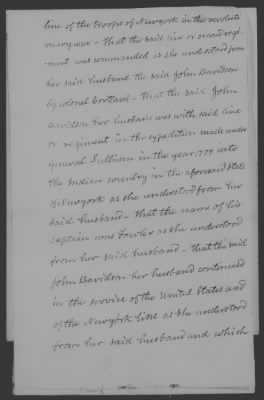 line of the troops of Newyork in the revoluti-
onary war - that the said line or second regi-
ment was commanded as she understood from
her said husband the said John Davidson
by colonel Cortland - that the said John
Davidson her husband was with said line
or regiment in the expedition made under
General Sullivan in the year 1779 into
the Indian country in the aforesaid State
of Newyork as she understood from her
said husband - that the name of his
captain was Fowler as she understood
from her said husband - that the said
John Davidson her husband continued
in the service of the United States and
of the Newyork line as she understood
from her said husband and which